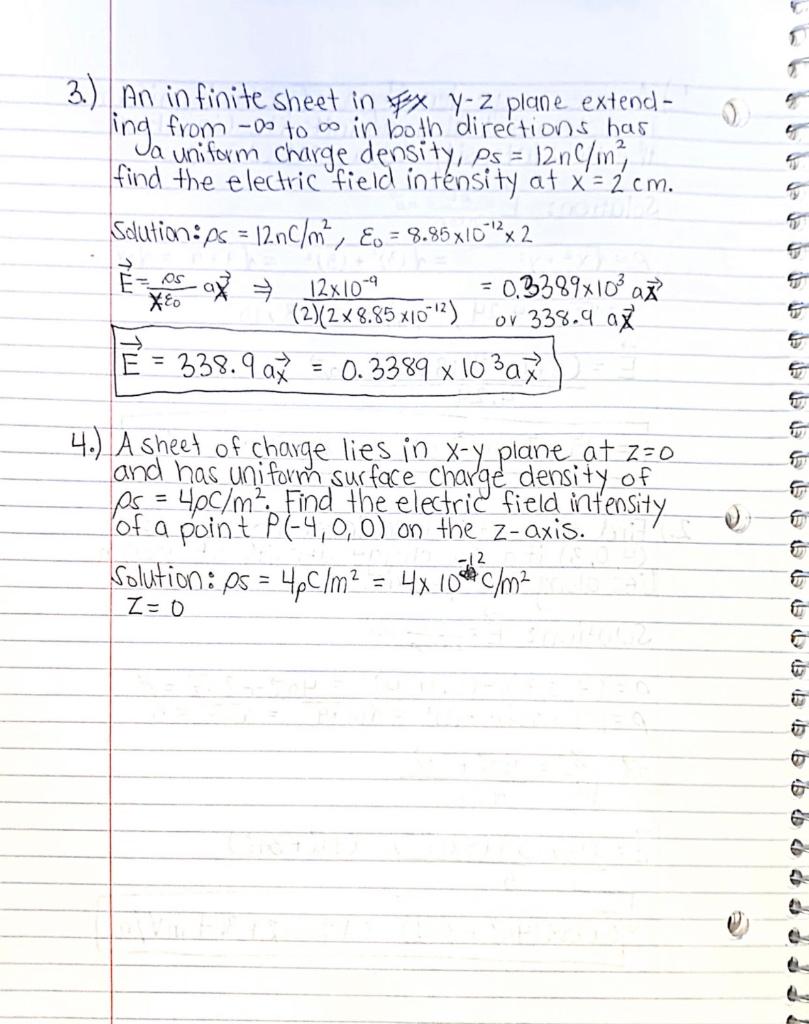 3.) An infinite sheet in y-z plane extend-
ing from -∞ to ∞ in both directions has
a uniform charge density, ρs = 12nC/m²,
find the electric field intensity at x = 2 cm.
Solution: ρs = 12nC/m², ε₀ = 8.85x10⁻¹² x 2
E⃗ = ρs/ε₀ ax⃗ ⇒ 12x10⁻⁹/(2)(2x8.85x10⁻¹²) = 0.3389x10³ ax⃗
or 338.9 ax⃗
E⃗ = 338.9 ax⃗ = 0.3389 x 10³ ax⃗
4.) A sheet of charge lies in x-y plane at z=0
and has uniform surface charge density of
ρs = 4pC/m². Find the electric field intensity
of a point P(-4,0,0) on the z-axis.
Solution: ρs = 4pC/m² = 4x10⁻¹² C/m²
Z=0